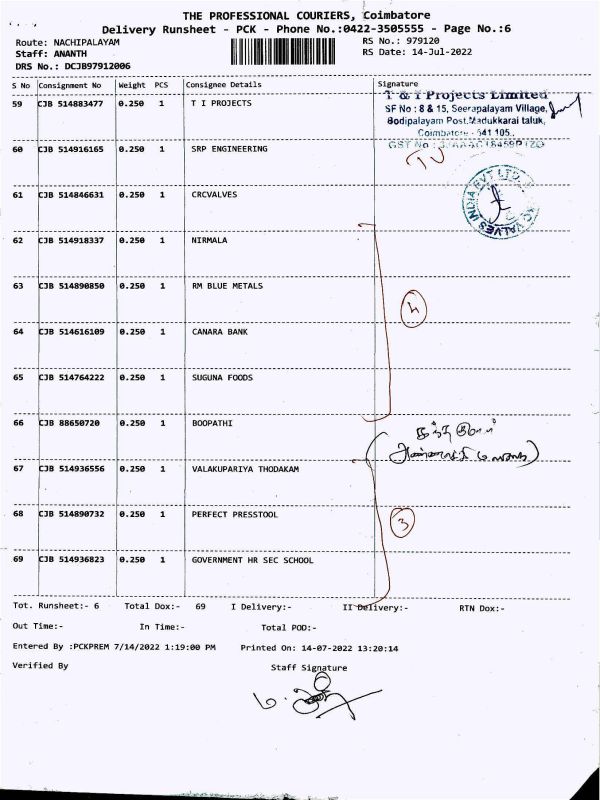 THE PROFESSIONAL COURIERS, Coimbatore
Delivery Runsheet - PCK - Phone No.:0422-3505555 - Page No.:6
Route: NACHIPALAYAM
RS No.: 979120
Staff: ANANTH
RS Date: 14-Jul-2022
DRS No.: DCJB97912006
S No Consignment No Weight PCS Consignee Details Signature
59 CJB 514883477 0.250 1 T I PROJECTS
T & I Projects Limited
SF No : 8 & 15, Seerapalayam Village,
Bodipalayam Post, Madukkarai taluk,
Coimbatore - 641 105.
60 CJB 514916165 0.250 1 SRP ENGINEERING
61 CJB 514846631 0.250 1 CRCVALVES
62 CJB 514918337 0.250 1 NIRMALA
63 CJB 514890850 0.250 1 RM BLUE METALS
4
64 CJB 514616109 0.250 1 CANARA BANK
65 CJB 514764222 0.250 1 SUGUNA FOODS
66 CJB 88650720 0.250 1 BOOPATHI
67 CJB 514936556 0.250 1 VALAKUPARIYA THODAKAM
68 CJB 514890732 0.250 1 PERFECT PRESSTOOL
3
69 CJB 514936823 0.250 1 GOVERNMENT HR SEC SCHOOL
Tot. Runsheet:- 6 Total Dox:- 69 I Delivery:- II Delivery:- RTN Dox:-
Out Time:- In Time:- Total POD:-
Entered By :PCKPREM 7/14/2022 1:19:00 PM Printed On: 14-07-2022 13:20:14
Verified By Staff Signature